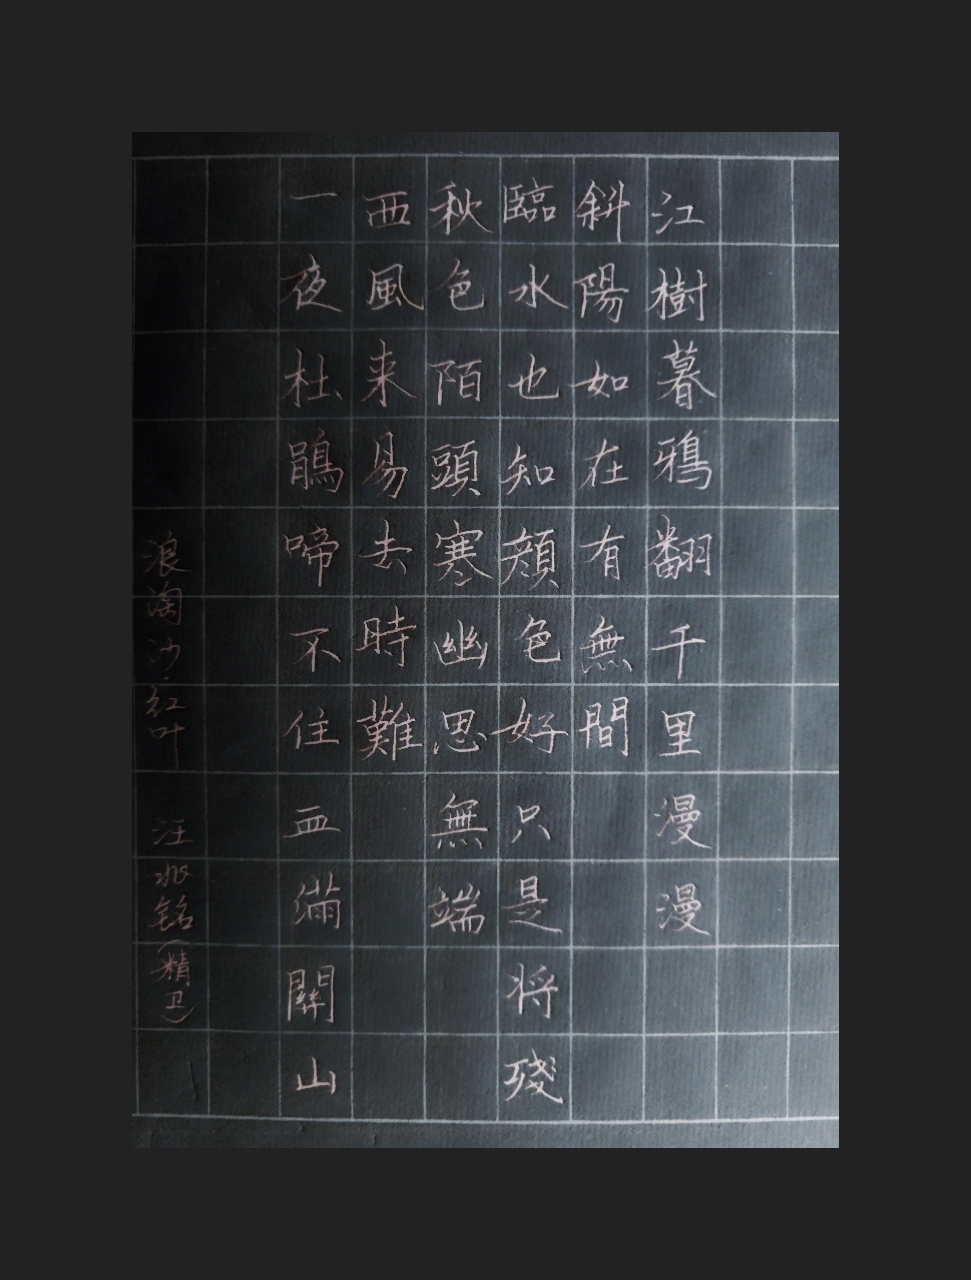 江樹暮鴉翻千里漫漫
斜陽如在有無間
臨水也知顔色好只是将殘
秋色陌頭寒幽思無端
西風来易去時難
一夜杜鵑啼不住血滿關山
浪淘沙·紅叶
汪兆铭(精卫)